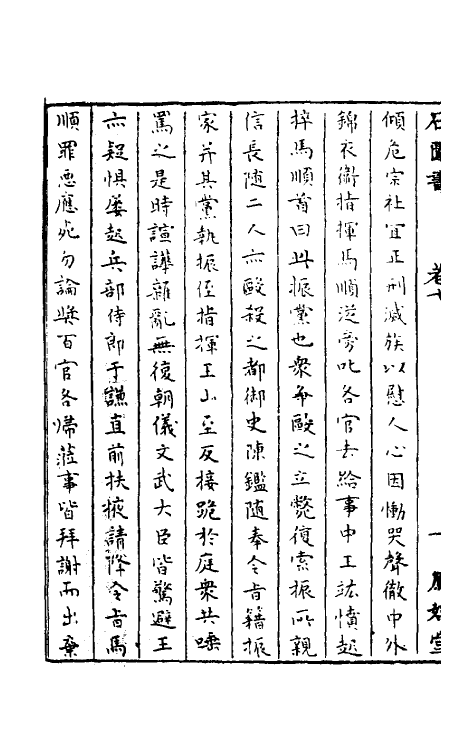 石匱書　卷十　一　鳳嬉堂
傾危宗社宜正刑滅族以慰人心因慟哭聲徹中外
錦衣衛指揮馬順從旁叱各官去給事中王竑憤起
捽馬順首曰此振黨也衆奔毆之立斃復索振所親
信長随二人亦毆殺之都御史陳鑑随奉令旨籍振
家并其黨執振侄指揮王山至反接跪於庭衆共唾
罵之是時諠譁雜亂無復朝儀文武大臣皆驚避王
亦疑懼屢起兵部侍郎于謙直前扶掖請降令旨馬
順罪惡應死勿論奬百官各歸蒞事皆拜謝而出棄